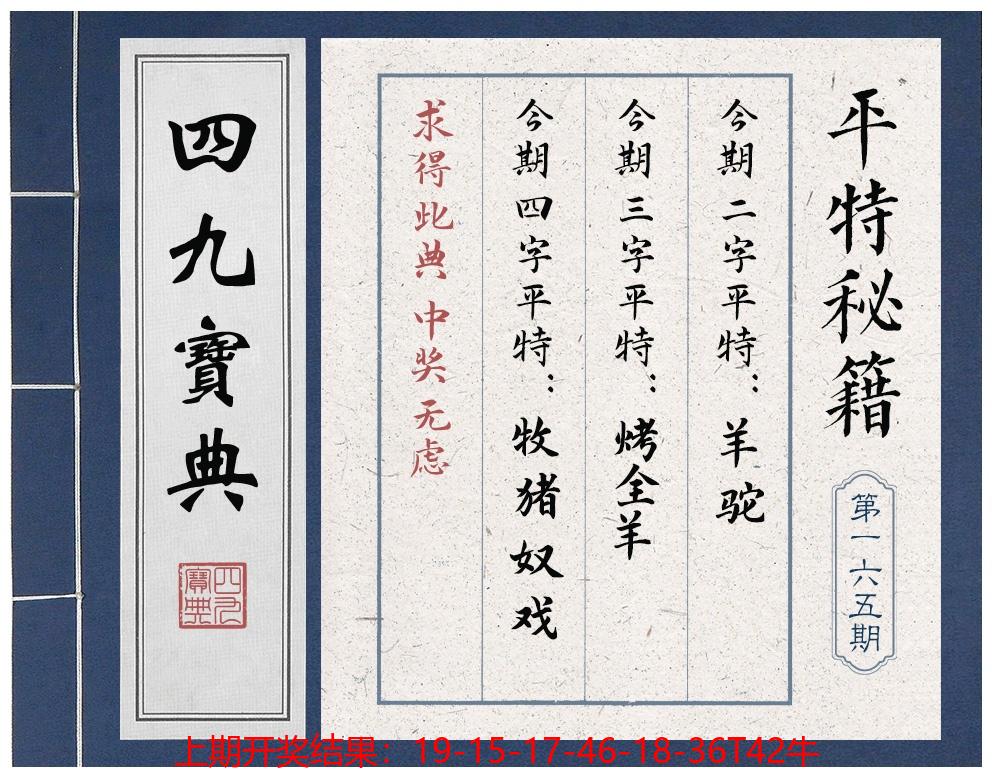 平特秘籍
第一六五期
今期二字平特：羊驼
今期三字平特：烤全羊
今期四字平特：牧猪奴戏
求得此典 中奖无虑
四九寶典
四九寶典
上期开奖结果：19-15-17-46-18-36T42牛